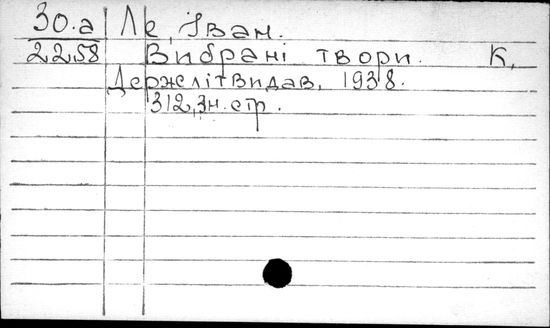 30.а Ле, Іван.
2258 Вибрані твори. К,
Держлітвидав, 1938.
312,3н. стр.